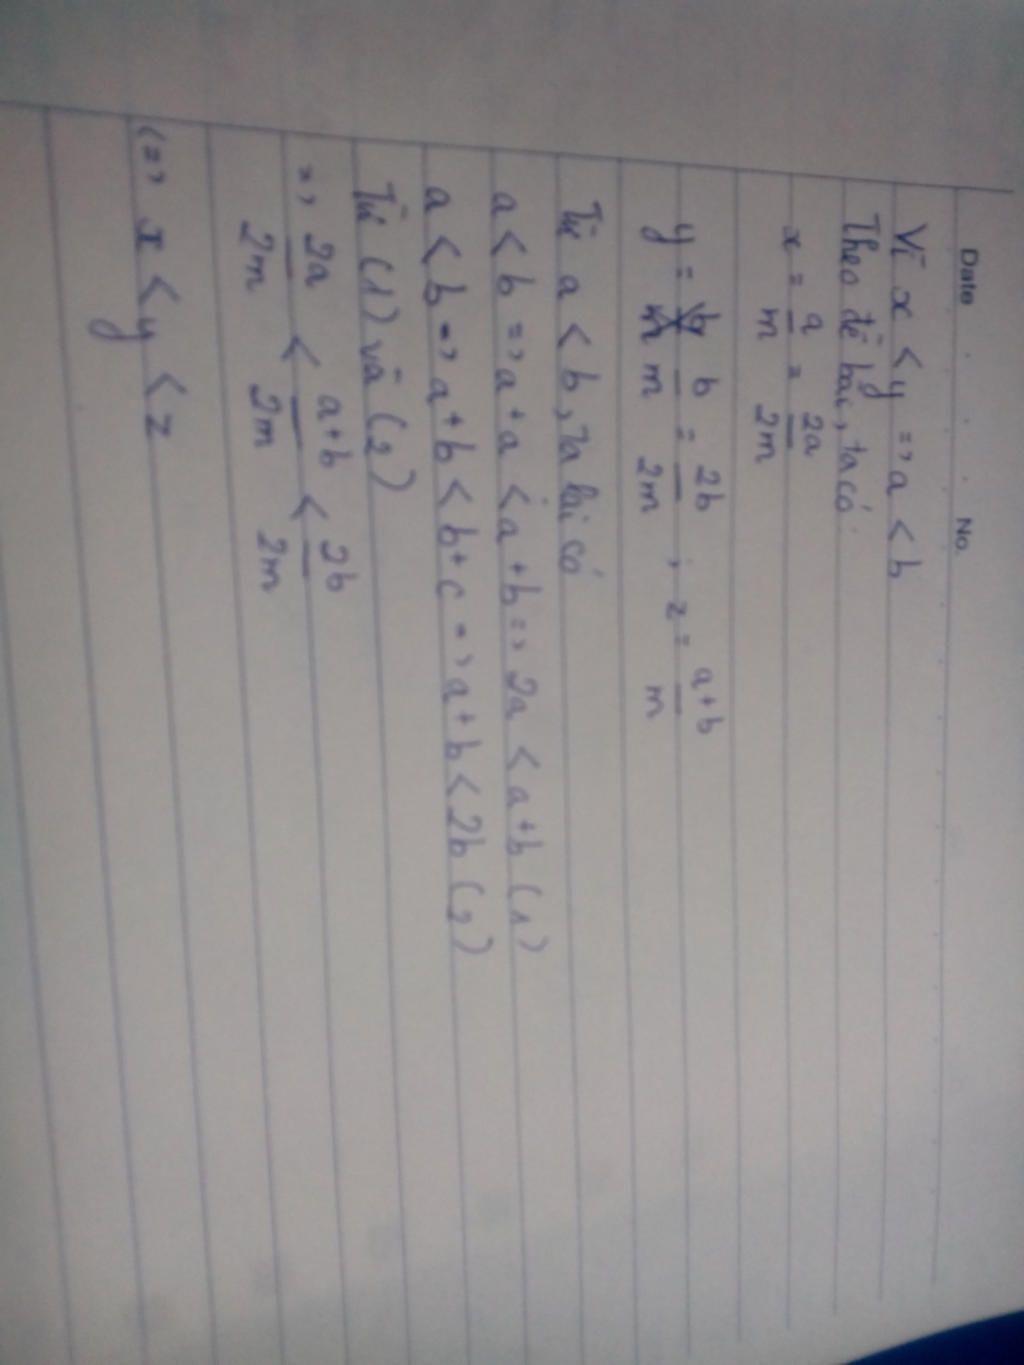 Date No.
Vì x < y => a < b
Theo đề bài, ta có:
x = a/m = 2a/2m
y = b/m = 2b/2m ; z = a+b/m
Từ a < b, ta lại có
a < b => a + a < a + b => 2a < a + b (1)
a < b => a + b < b + c => a + b < 2b (2)
Từ (1) và (2)
=> 2a/2m < a+b/2m < 2b/2m
(=> x < y < z